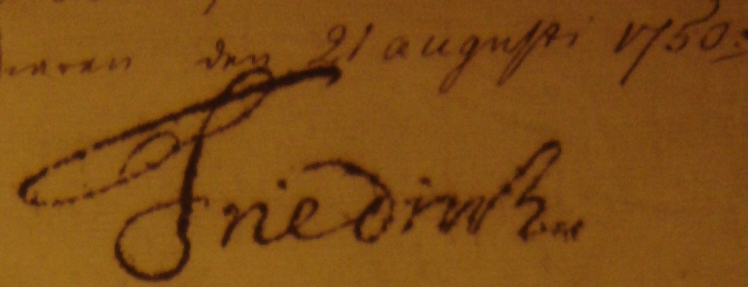 den 21 augusti 1750.
Friedrich